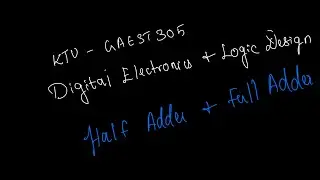 KTU - GAEST305
Digital Electronics + Logic Design
Half Adder + Full Adder